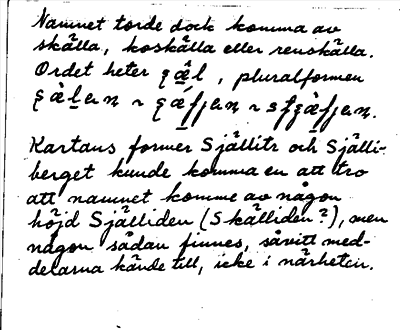 Namnet torde dock komma av
skälla, koskälla eller renskälla.
Ordet heter , pluralformen
Kartans former Själlitr och Själli-
berget kunde komma en att tro
att namnet komme av någon
höjd Själliden (Skälliden?), men
någon sådan finnes, såvitt med-
delarna kände till, icke i närheten.